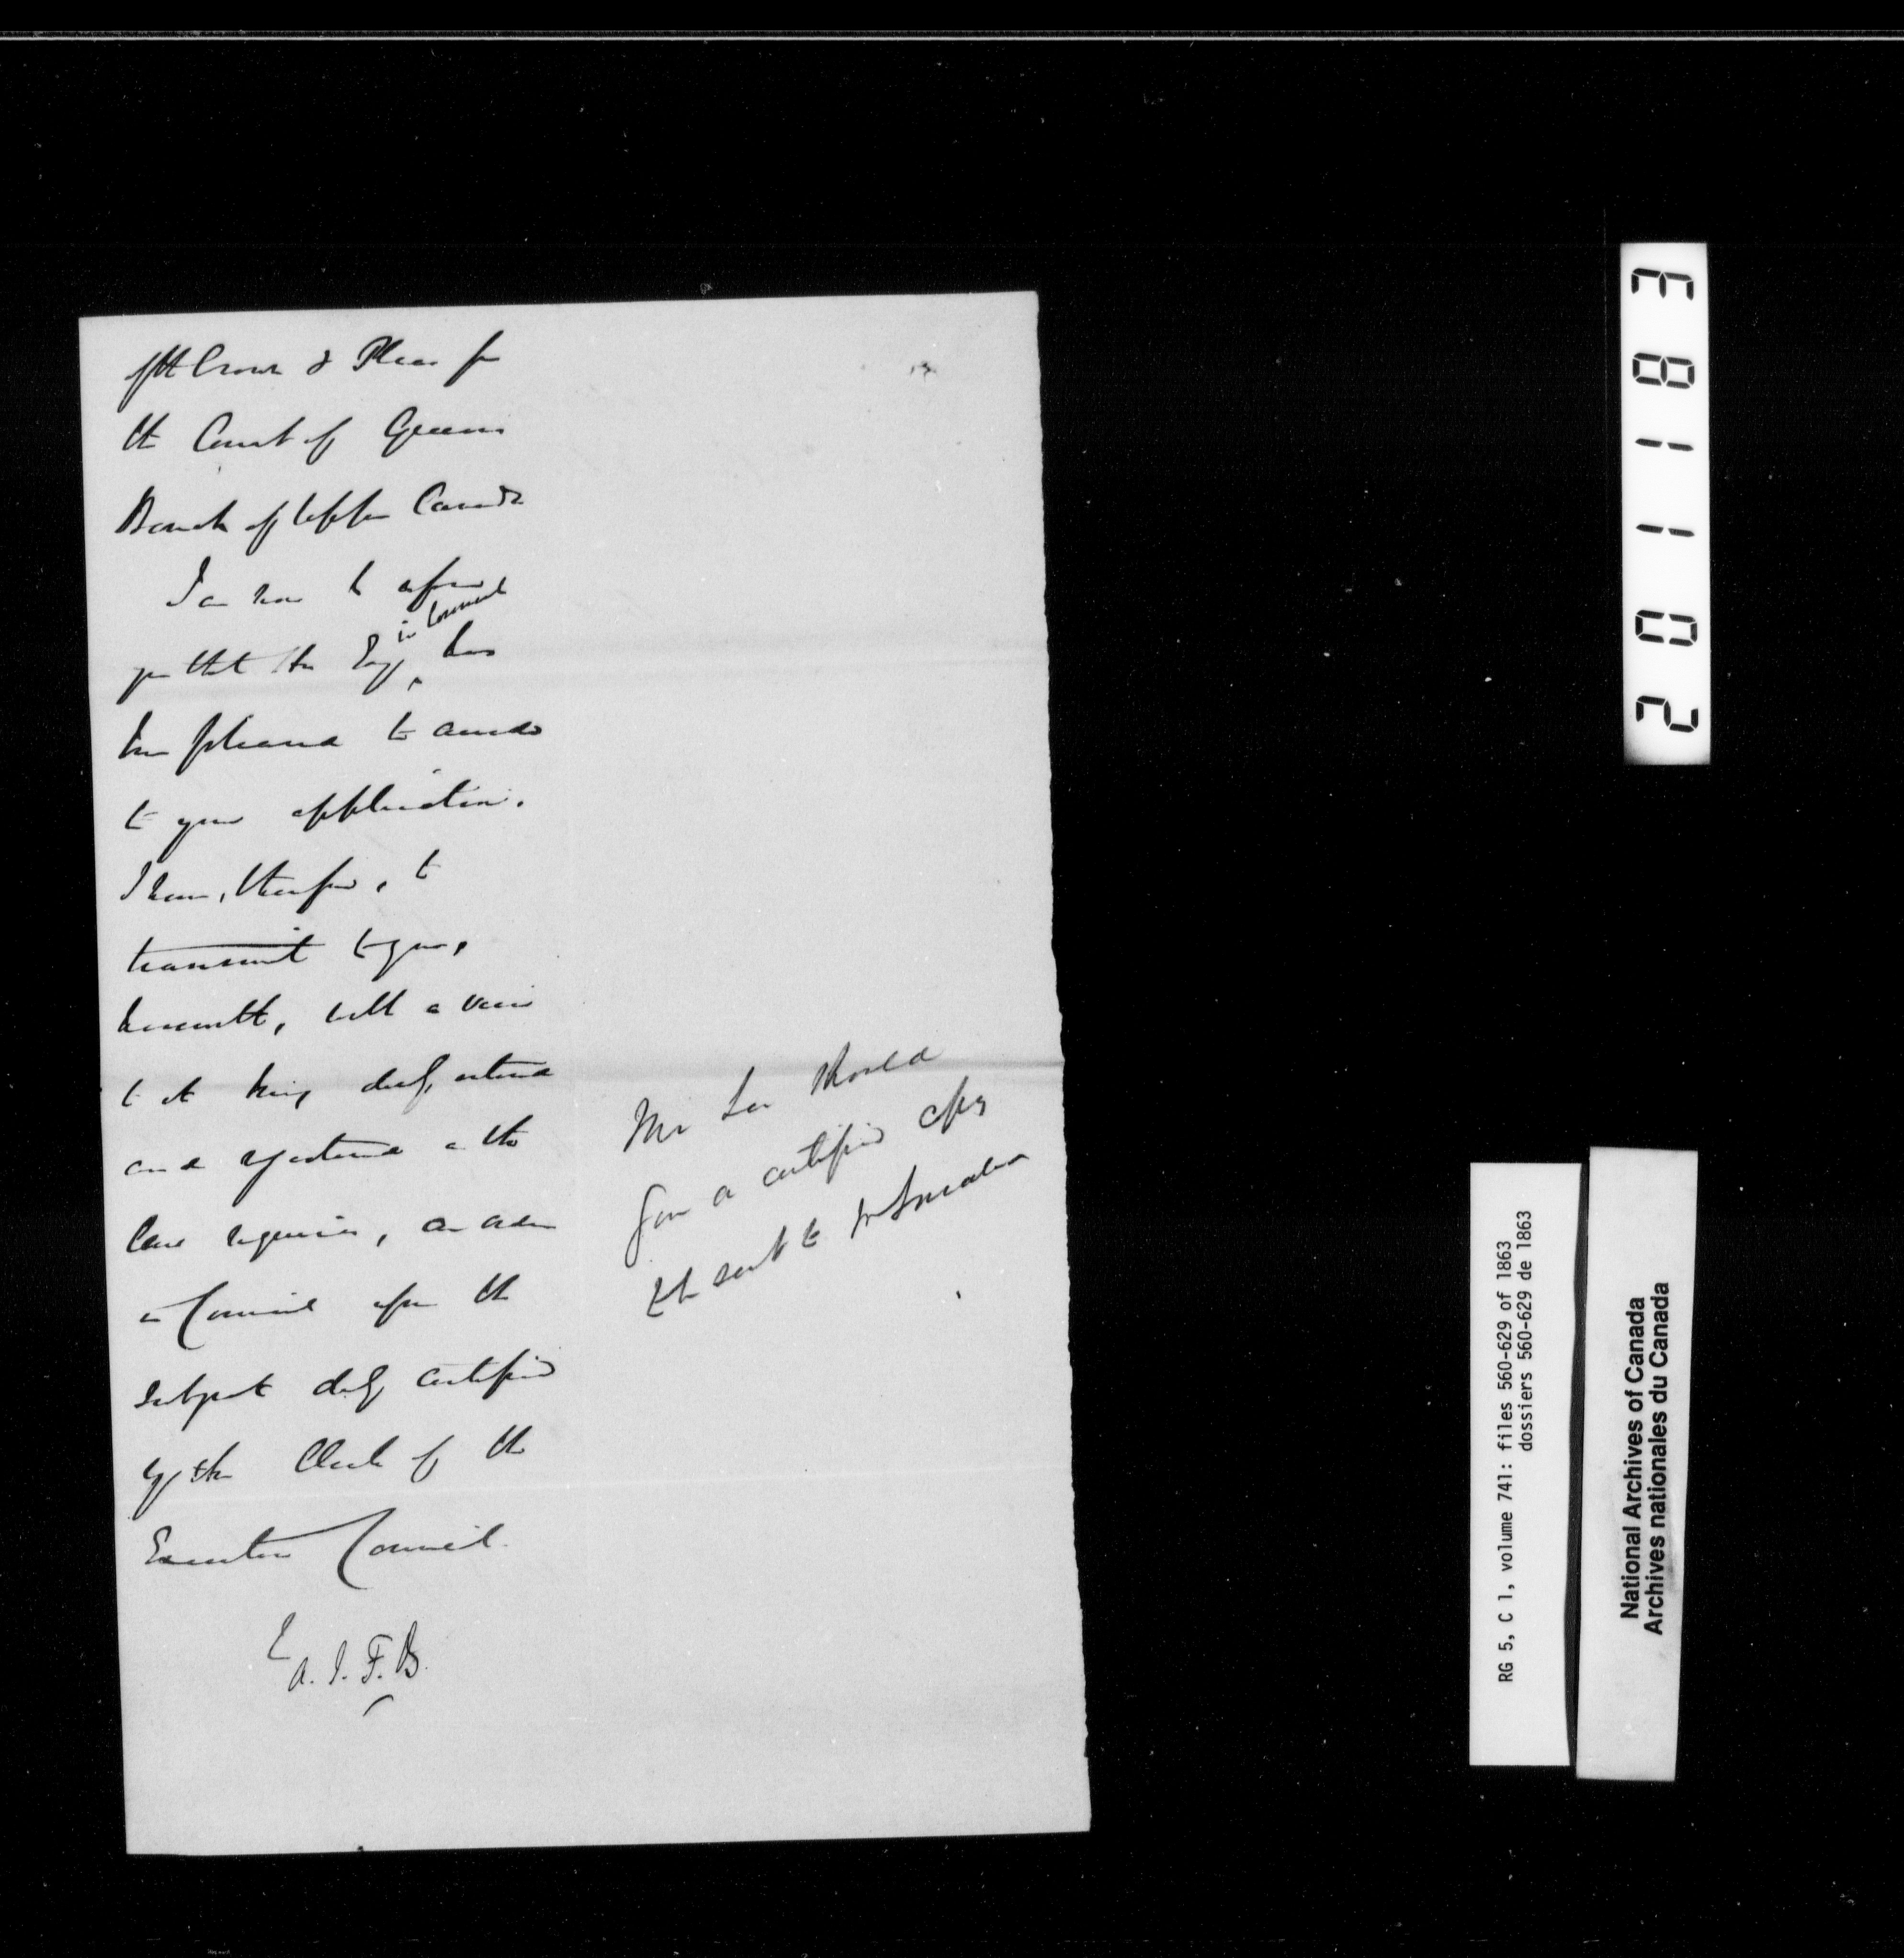 of the Crown & Pleas for
the Court of Queens
Bench of Upper Canada
I am now to inform
you that His Exy in Council has
been pleased to accede
to your application.
I have, therefore, to
transmit to you,
herewith, with a view
to its being duly entered
and registered in the
Law requires, an order
in Council upon the
subject duly certified
by the Clerk of the
Executive Council.
A. I. F. B.
Mr Lee should
give a certified copy
to be sent to
38 1 102
RG 5, C 1, volume 741: files 560-629 of 1863
dossiers 560-629 de 1863
National Archives of Canada
Archives nationales du Canada